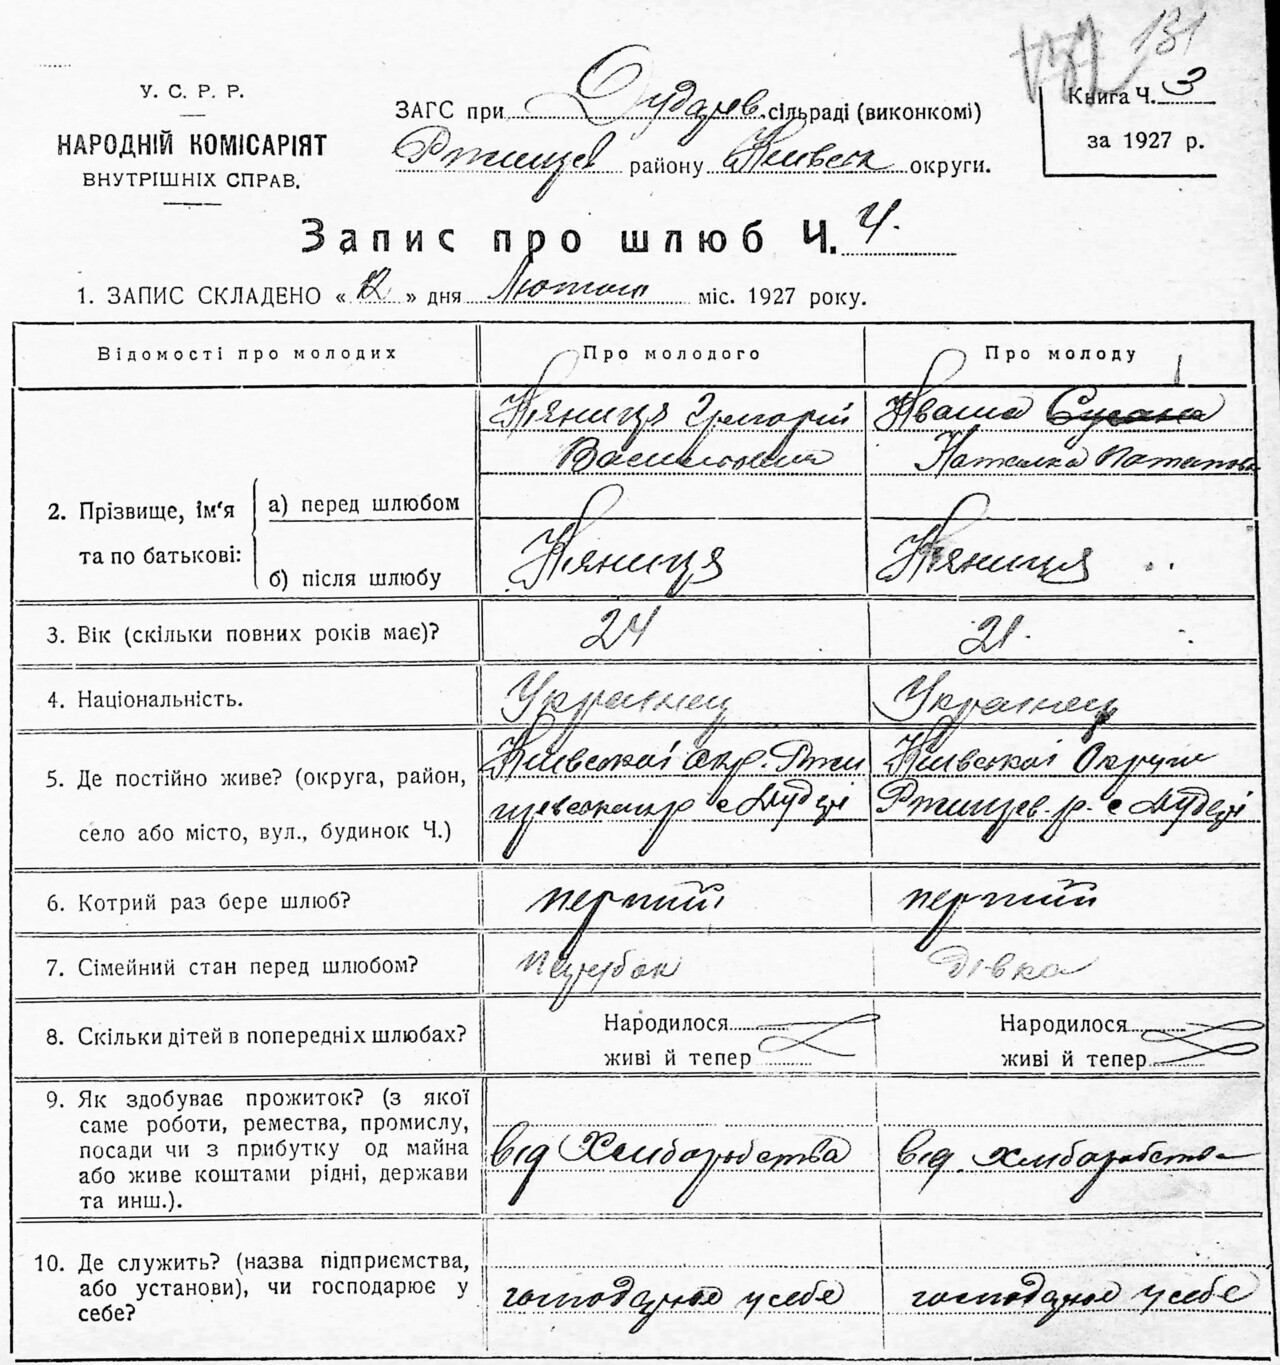 131
У. С. Р. Р.
НАРОДНІЙ КОМІСАРІЯТ
ВНУТРІШНІХ СПРАВ.
ЗАГС при Дударев. сільраді (виконкомі)
Ржищев району Київськ округи.
Книга Ч. 3
за 1927 р.
Запис про шлюб Ч. 4.
1. ЗАПИС СКЛАДЕНО « 12 » дня Лютого міс. 1927 року.
Відомості про молодих
Про молодого
Про молоду
2. Прізвище, ім'я
та по батькові:
а) перед шлюбом
б) після шлюбу
Григорій
Васильович
Наталка
3. Вік (скільки повних років має)?
24
21.
4. Національність.
Українец
Українец
5. Де постійно живе? (округа, район,
село або місто, вул., будинок Ч.)
Київської окр. Ржи
щевськ р с Дудері
Київської Округи
Ржищев. р. с Дудері
6. Котрий раз бере шлюб?
перший
перший
7. Сімейний стан перед шлюбом?
парубок
дівка
8. Скільки дітей в попередніх шлюбах?
Народилося
живі й тепер
Народилося
живі й тепер
9. Як здобуває прожиток? (з якої
саме роботи, ремества, промислу,
посади чи з прибутку од майна
або живе коштами рідні, держави
та инш.).
від Хліборобства
від. хліборобства
10. Де служить? (назва підприємства,
або установи), чи господарює у
себе?
господарює у себе
господарює у себе